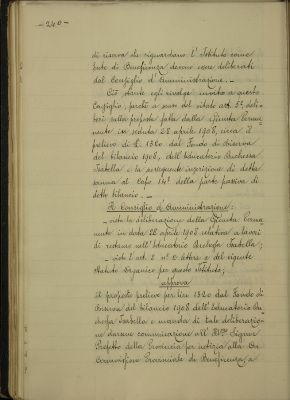 - 260 -
di riserva che riguardano l'Istituto come
Ente di Beneficenza devono essere deliberati
dal Consiglio d'Amministrazione. -
Ciò stante egli rivolge invito a questo
Consiglio, perchè a senso del citato art. 6°, deli-
beri sulla proposta fatta dalla Giunta Perma
nente in seduta 28 aprile 1908, circa il
prelievo di £. 1320 dal Fondo di Riserva
del bilancio 1908, dell'Educatorio
Isabella e la susseguente inscrizione di detta
somma al Capo 14° della parte passiva di
detto bilancio. -
Il Consiglio d'Amministrazione:
- vista la deliberazione della Giunta Perma
nente in data 28 aprile 1908 relativa a lavori
di nell'Educatorio Isabella;
- visto l'art. 2 n° 2 lettera e del vigente
Statuto Organico per questo Istituto;
approva
Il proposto prelievo per lire 1320 dal Fondo di
Riserva del bilancio 1908 dell'Educatorio
Isabella e manda di tale deliberazio-
ne darsene comunicazione all'Ill.mo Signor
Prefetto della Provincia per notizia alla
Commissione Provinciale di Beneficenza e